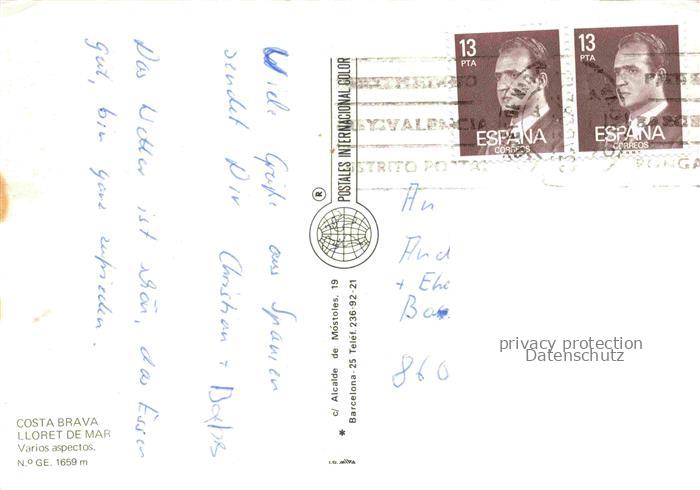 Viele Grüße aus Spanien
sendet Dir Christian + 
Das Wetter ist schön, das Essen
gut, bin ganz zufrieden.
COSTA BRAVA
LLORET DE MAR
Varios aspectos.
N.º GE. 1659 m
POSTALES INTERNACIONAL COLOR
®
* c/ Alcalde de Móstoles, 19
Barcelona-25 Teléf. 236-92-21
13 PTA
ESPAÑA
CORREOS
13 PTA
ESPAÑA
CORREOS
VALENCIA
DISTRITO POSTAL
PONGA
An
And
+ Ehe
860
privacy protection
Datenschutz